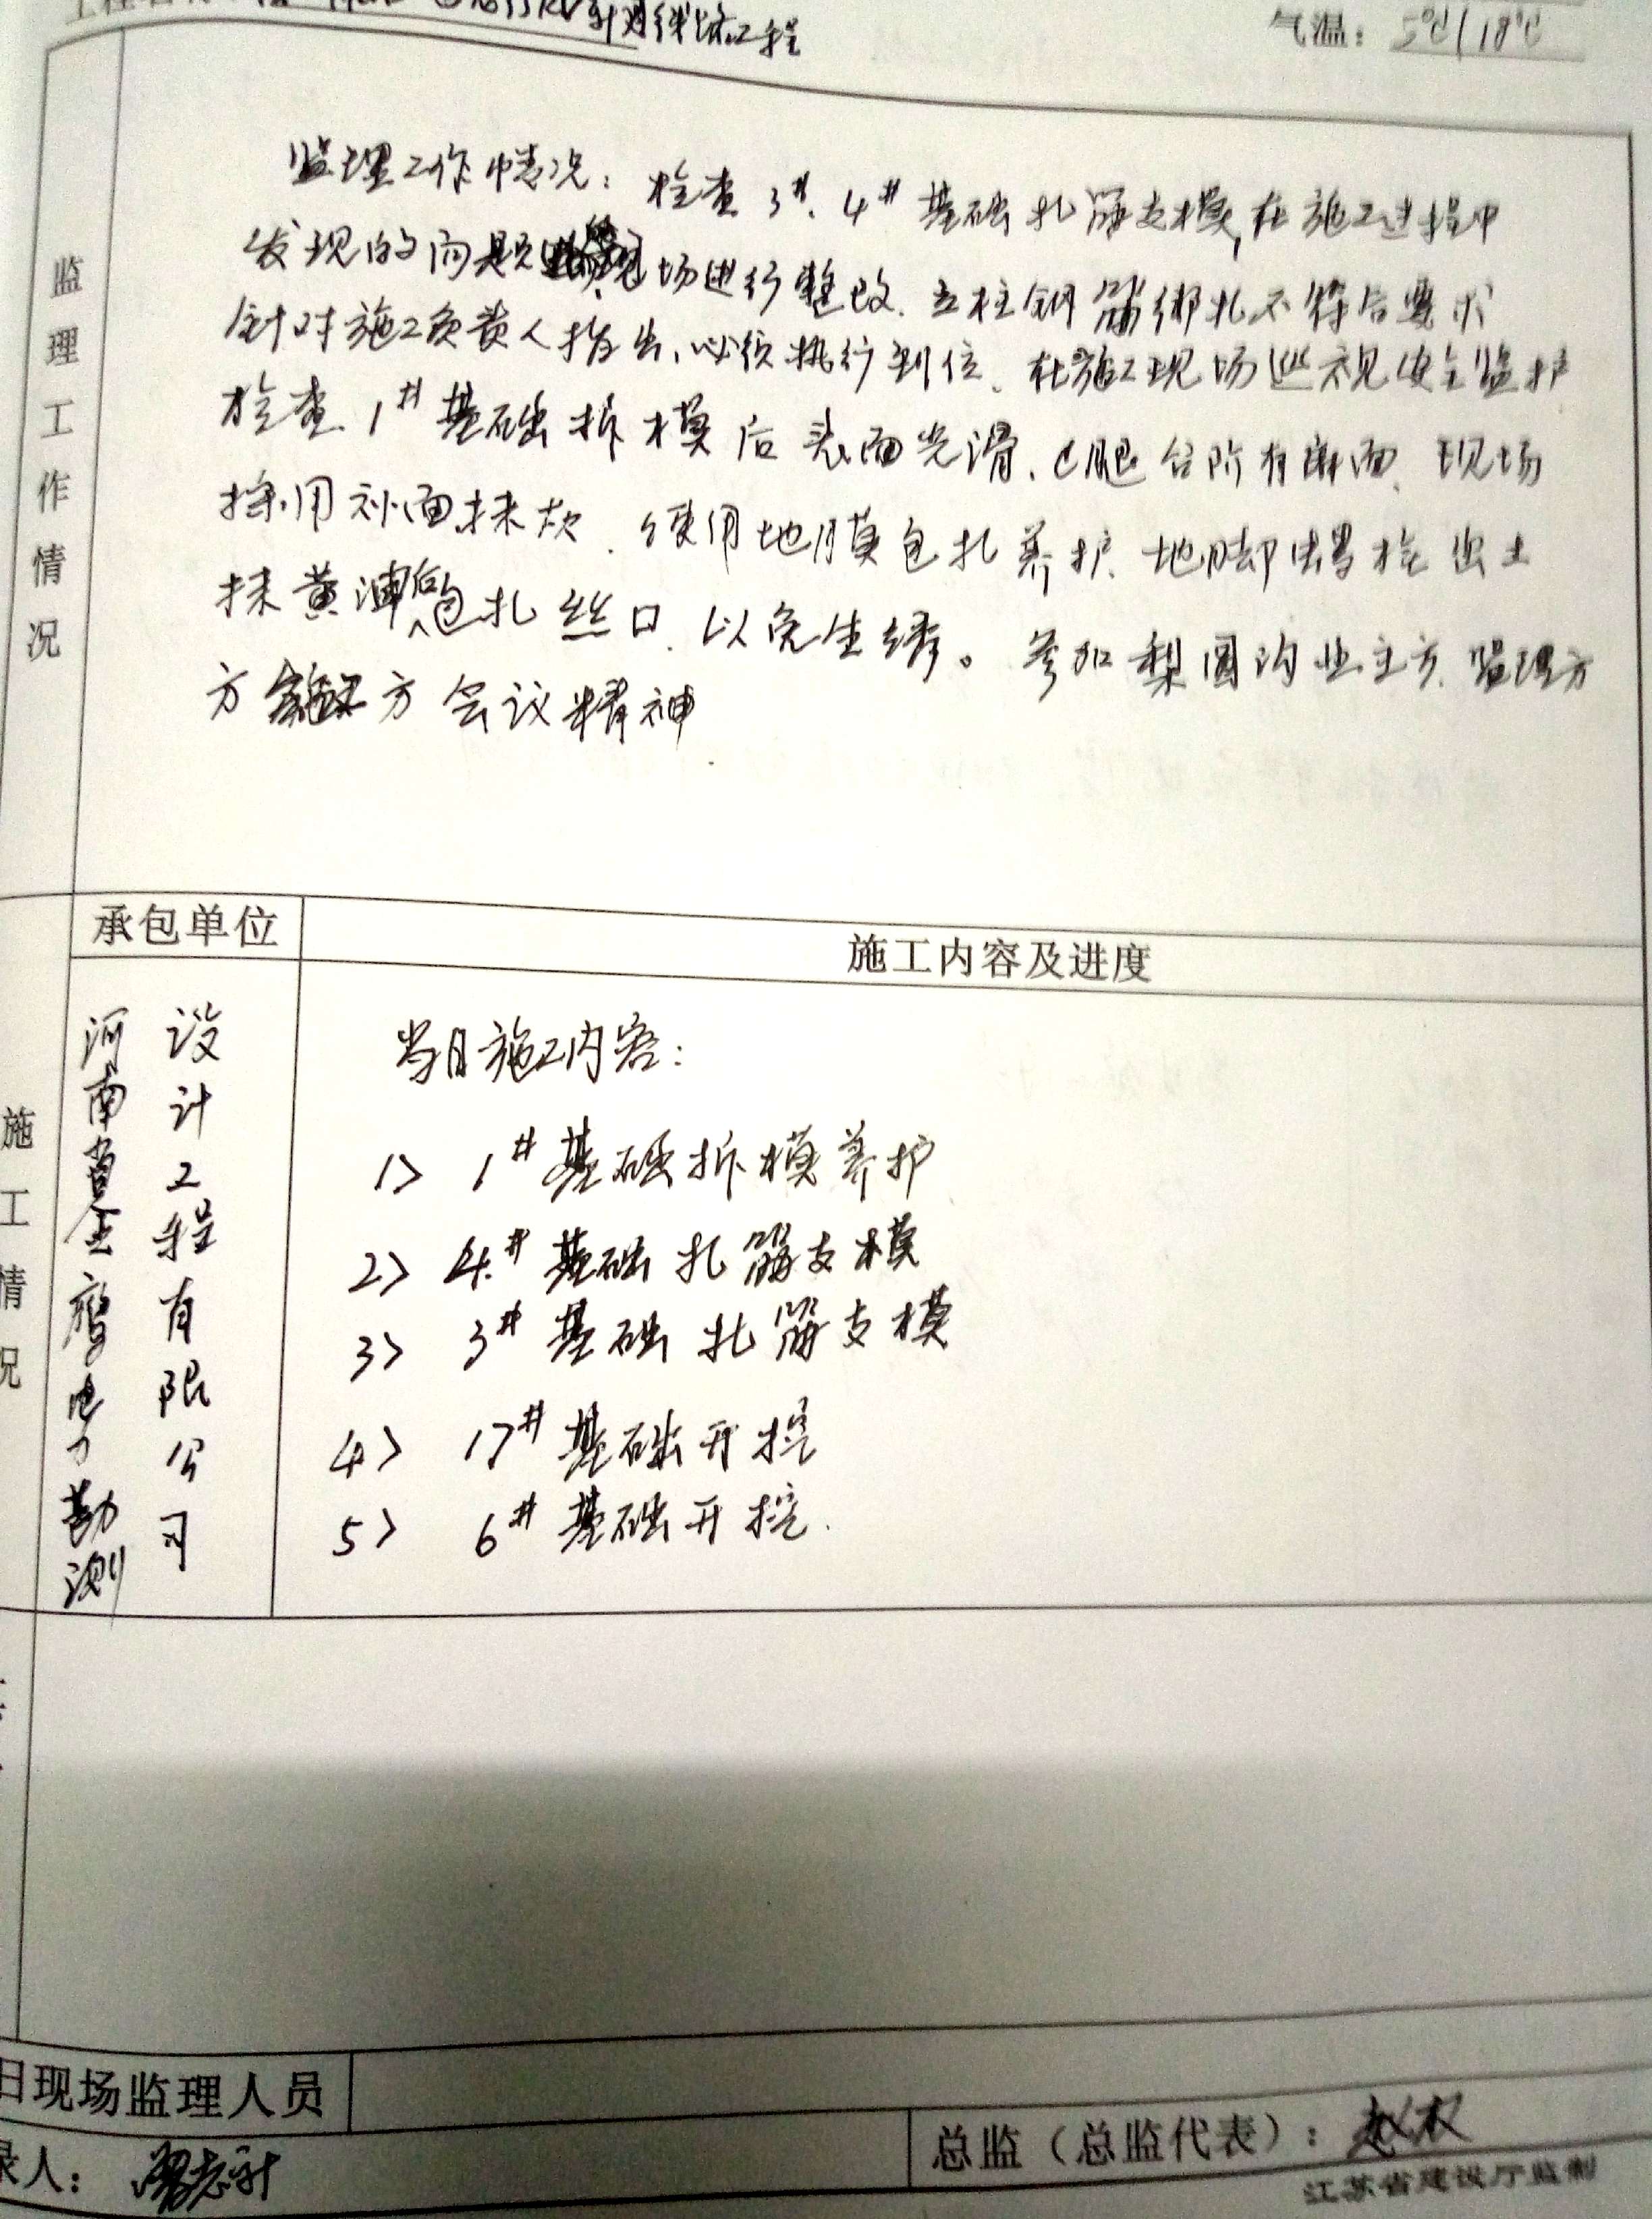 升对线路工程
气温：5℃/18℃
监理工作情况
监理工作情况：检查3#、4#基础扎筋支模,在施工过程中
发现的问题现场进行整改.立柱钢筋绑扎不符合要求
针对施工负责人指出、必须执行到位、在施工现场巡视安全监护
检查1#基础拆模后表面光滑、C腿台阶有断面、现场
採用补面抹灰、使用地膜包扎养护、地脚螺栓出土
抹黄油后包扎丝口、以免生锈。参加梨园沟业主方、监理方
方 方会议精神
承包单位
施工内容及进度
施工情况
河南 金鹰电力勘测
设计工程有限公司
当日施工内容：
1> 1#基础拆模养护
2> 4#基础扎筋支模
3> 3#基础扎筋支模
4> 17#基础开挖
5> 6#基础开挖.
日现场监理人员
录人：
总监（总监代表）：赵权
江苏省建设厅监制